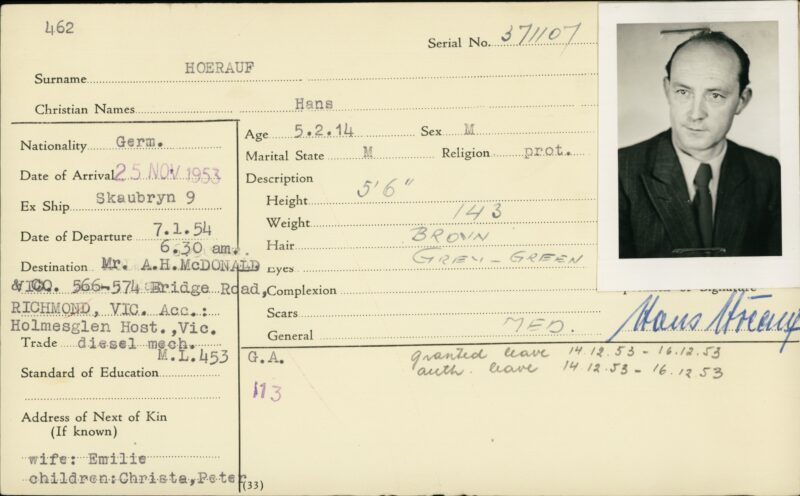 462
Serial No. 371107
Surname HOERAUF
Christian Names Hans
Nationality Germ.
Date of Arrival 25 NOV 1953
Ex Ship Skaubryn 9
Date of Departure 7.1.54
6.30 am.
Destination Mr. A.H.McDONALD
& CO. 566-574 Bridge Road,
RICHMOND, VIC. Acc.:
Holmesglen Host.,Vic.
Trade diesel mech.
M.L.453
Standard of Education
Address of Next of Kin
(If known)
wife: Emilie
children:Christa,Peter
Age 5.2.14 Sex M
Marital State M Religion prot.
Description
Height 5'6"
Weight 143
Hair BROWN
Eyes GREY-GREEN
Complexion
Scars
General MED.
Signature
Hans Hoerauf
G.A.
granted leave 14.12.53 - 16.12.53
auth. leave 14.12.53 - 16.12.53
113
(33)